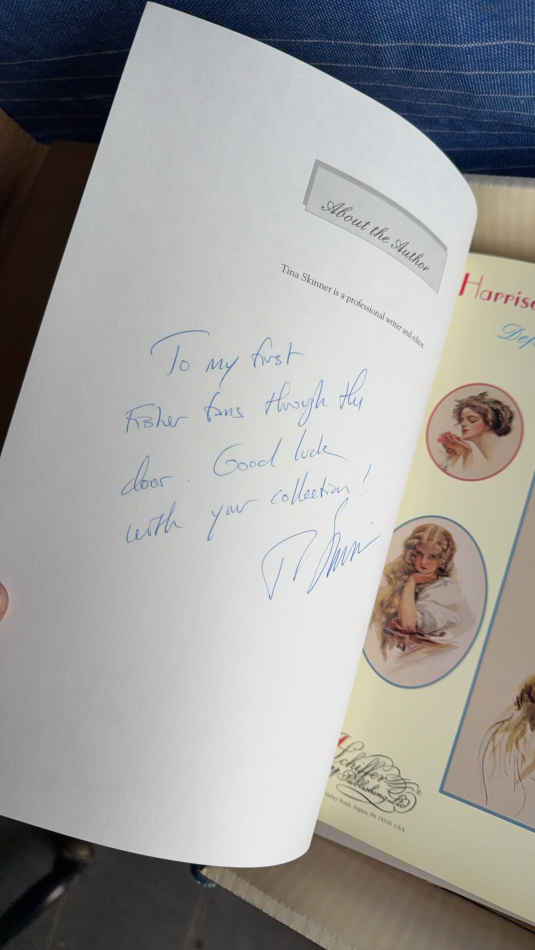 About the Author
Tina Skinner is a professional writer and editor.
To my first
Fisher fans through the
door. Good luck
with your collection!
T Skinn
Harriso
Dep
Schiffer
Publishing Ltd